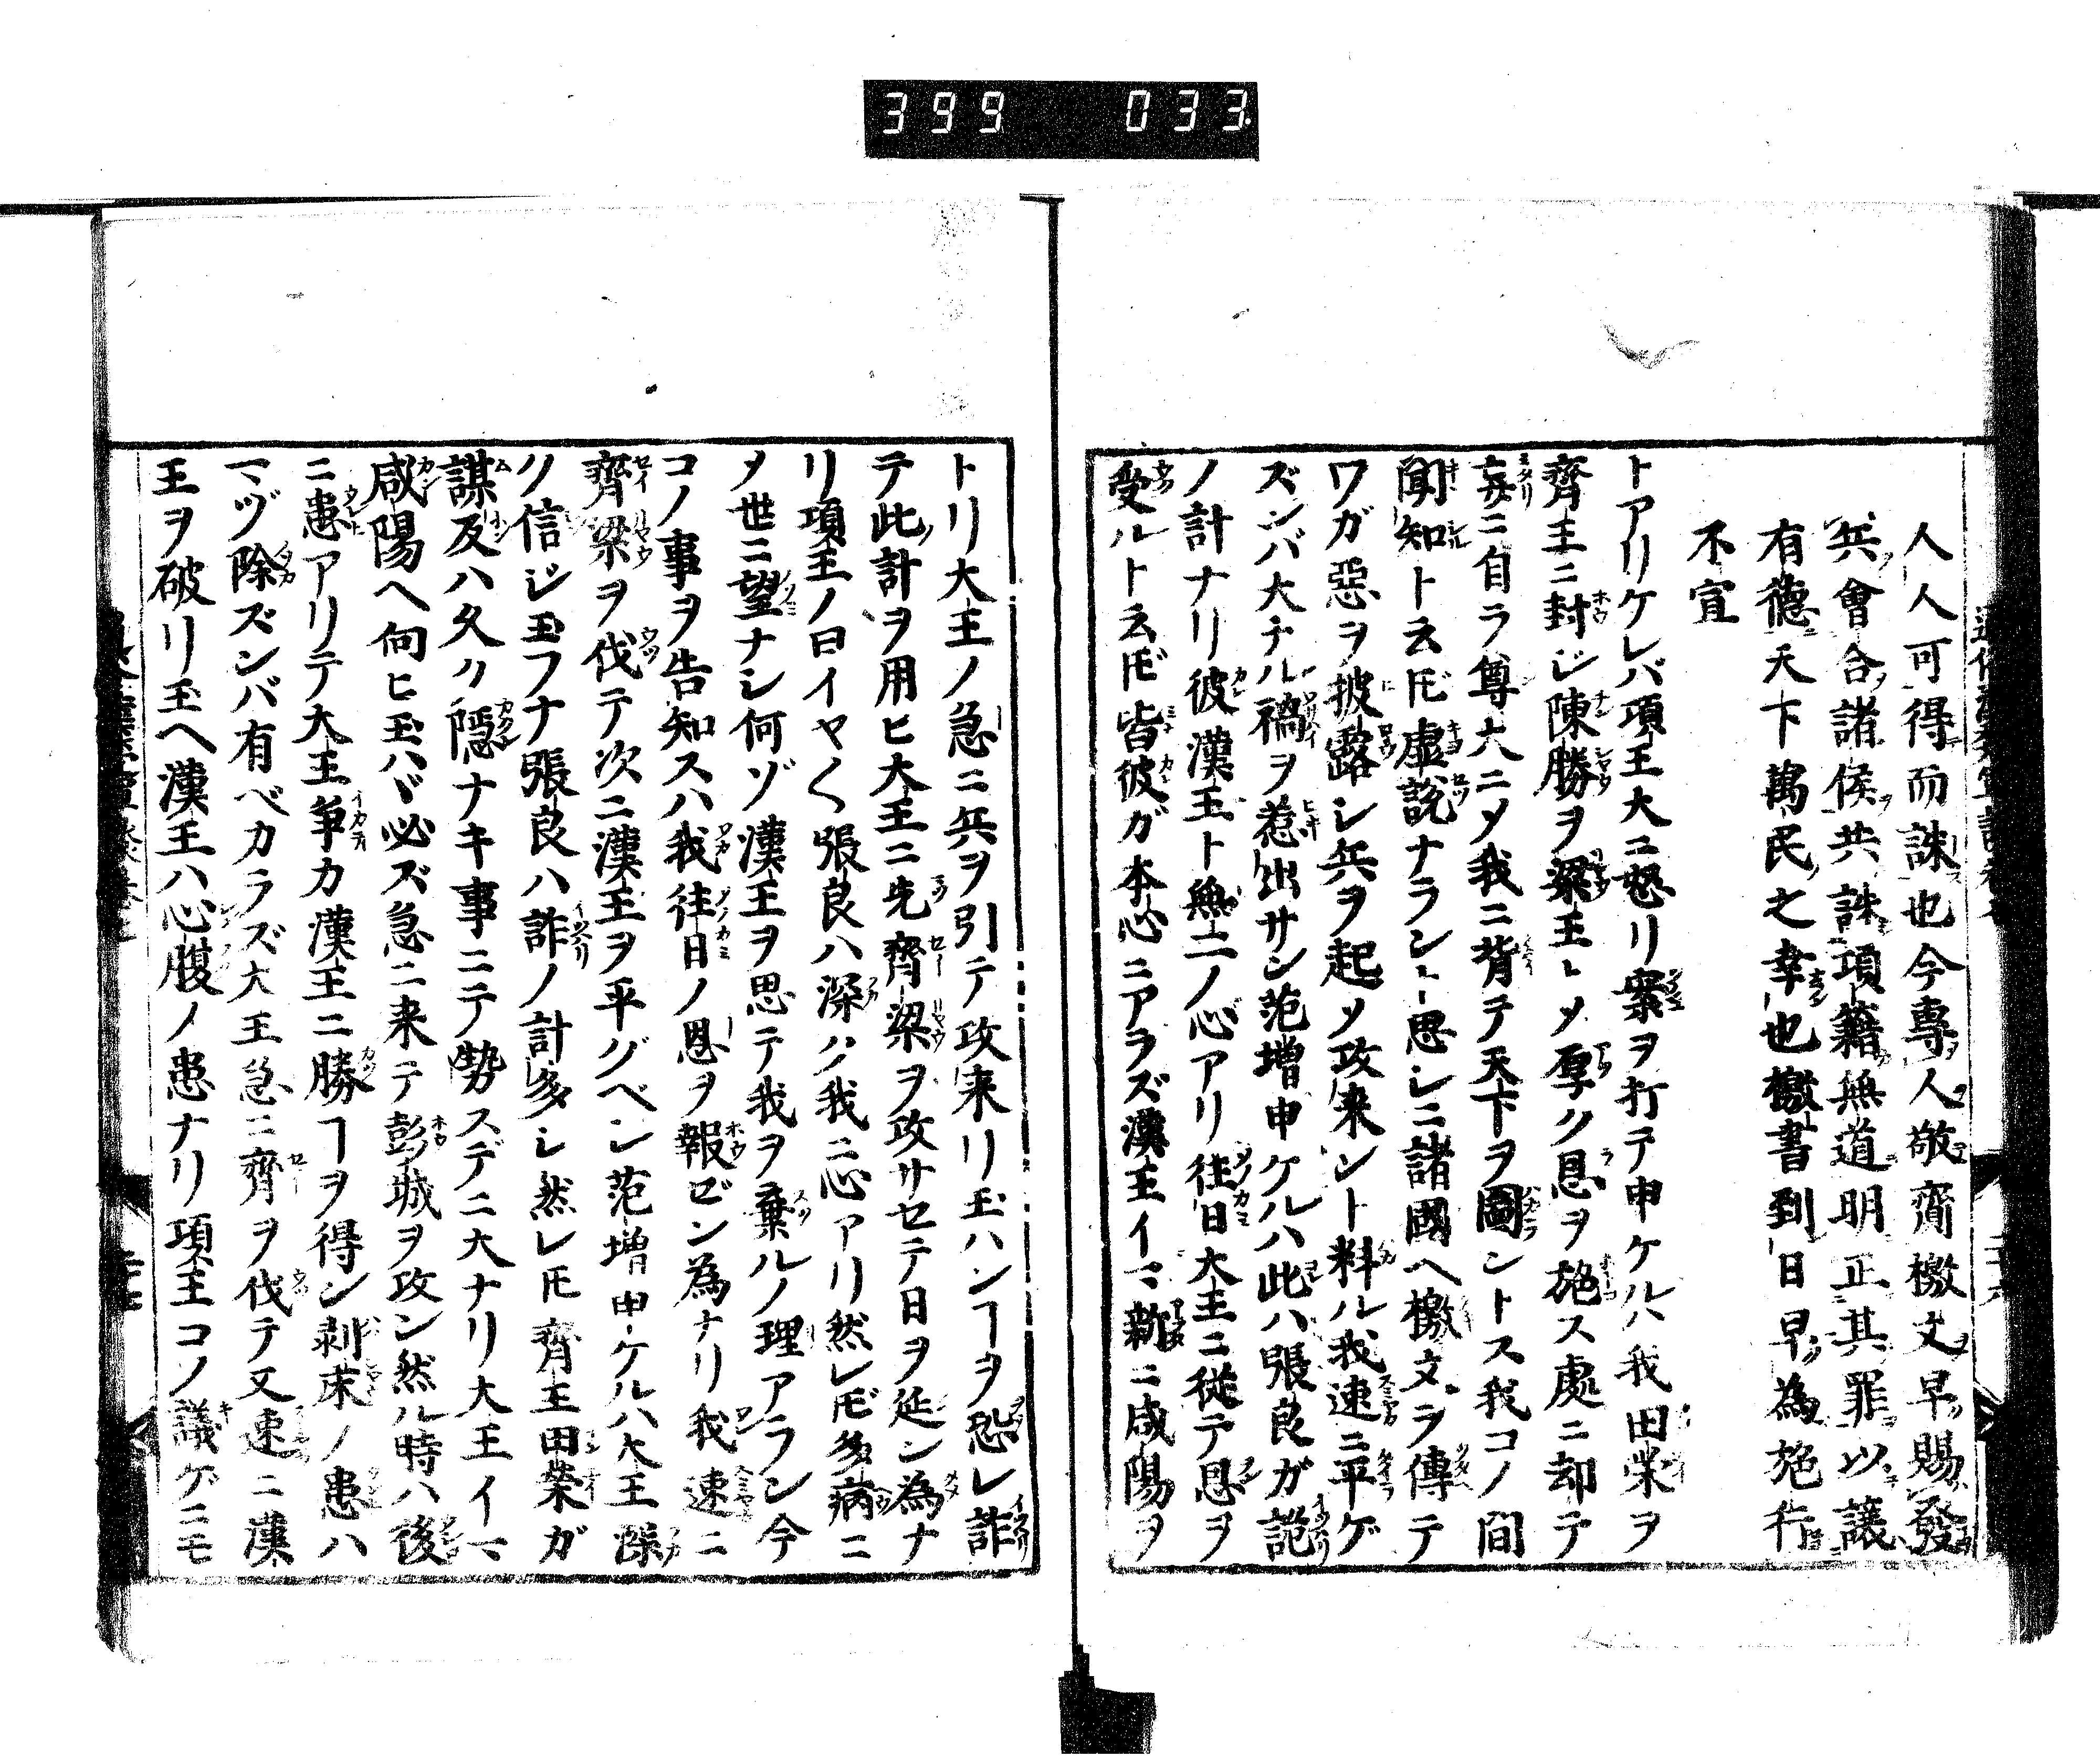 399 033
人人可得而誅也今專人敬齎檄文早賜發
兵會合諸侯共誅項籍無道明正其罪以讓
有德天下萬民之幸也檄書到日早為施行
不宣
トアリケレバ項王大ニ怒リ案ヲ打テ申ケルハ我田栄ヲ
齊王ニ封ジ陳勝ヲ梁王トメ厚ク恩ヲ施ス處ニ却テ
妄ニ自ラ尊大ニメ我ニ背テ天下ヲ圖ントス我コノ間
聞知ト云𪜈虚説ナラント思シニ諸國ヘ檄文ヲ傳テ
ワガ惡ヲ披露シ兵ヲ起メ攻来ント料ル我速ニ平ゲ
ズンバ大ナル禍ヲ惹出サン范増申ケルハ此ハ張良ガ詭
ノ計ナリ彼漢王ト無二ノ心アリ往日大王ニ從テ恩ヲ
受ルト云𪜈皆彼ガ本心ニアラズ漢王イマ新ニ咸陽ヲ
トリ大王ノ急ニ兵ヲ引テ攻来リ玉ハンヿヲ恐レ詐
テ此計ヲ用ヒ大王ニ先齊梁ヲ攻サセテ日ヲ延ン為ナ
リ項王ノ曰イヤ〱張良ハ深ク我ニ心アリ然レ𪜈多病ニ
メ世ニ望ナシ何ゾ漢王ヲ思テ我ヲ棄ルノ理アラン今
コノ事ヲ告知スハ我往日ノ恩ヲ報ゼン為ナリ我速ニ
齊梁ヲ伐テ次ニ漢王ヲ平グベン范増申ケルハ大王深
ク信ジ玉フナ張良ハ詐ノ計多シ然レ𪜈齊王田榮ガ
謀反ハ久ク隠ナキ事ニテ勢スデニ大ナリ大王イマ
咸陽ヘ向ヒ玉ハヾ必ズ急ニ来テ彭城ヲ攻ン然ル時ハ後
ニ患アリテ大王争カ漢王ニ勝ヿヲ得ン剥床ノ患ハ
マヅ除ズンバ有ベカラズ大王急ニ齊ヲ伐テ又速ニ漢
王ヲ破リ玉ヘ漢王ハ心腹ノ患ナリ項王コノ議ゲニモ